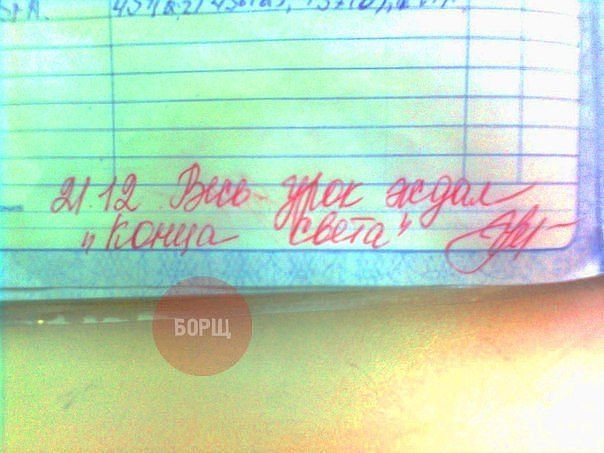 21.12 Весь урок ждал
„Конца света"
БОРЩ